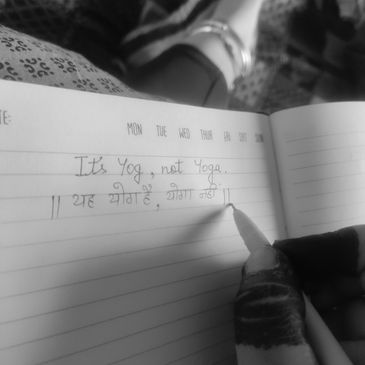 TE:
MON TUE WED THUR FRI SAT SUN
It's Yog, not Yoga.
|| यह योग है, योगा नहीं ||